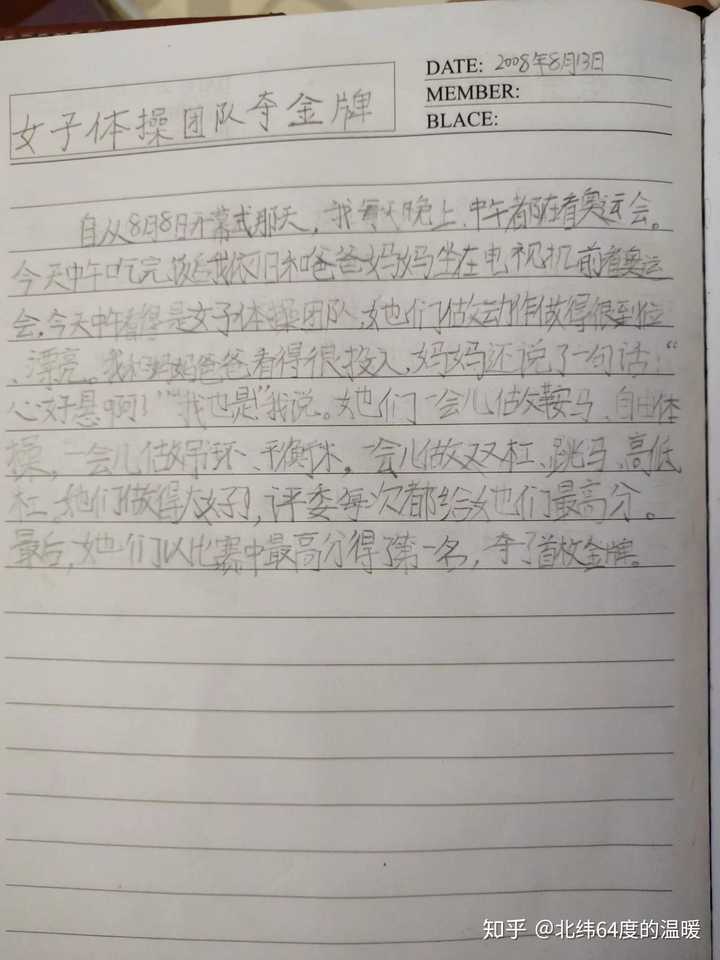 DATE: 2008年8月13日
MEMBER:
BLACE:
女子体操团队夺金牌
自从8月8日开幕式那天,我每天晚上、中午都在看奥运会。
今天中午吃完饭后我依旧和爸爸妈妈坐在电视机前看奥运
会,今天中午看得是女子体操团队,她们做动作做得很到位
、漂亮。我和妈妈爸爸看得很投入,妈妈还说了一句话:“
心好悬啊!”“我也是”我说。她们一会儿做鞍马、自由体
操,一会儿做吊环、平衡木,一会儿做双杠、跳马、高低
杠。她们做得太好了,评委每次都给她们最高分。
最后,她们以比赛中最高分得了第一名,夺了首枚金牌。
知乎 @北纬64度的温暖